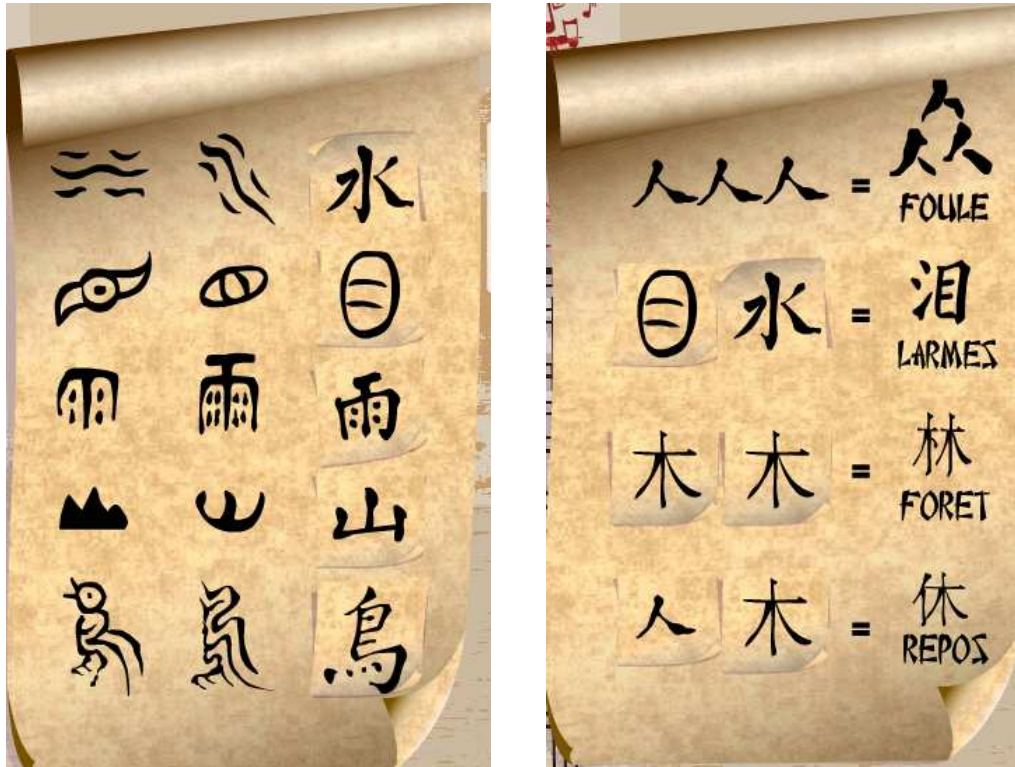 水
目
雨
山
鳥
人人人 = 众
FOULE
目 水 = 泪
LARMES
木 木 = 林
FORET
人 木 = 休
REPOS